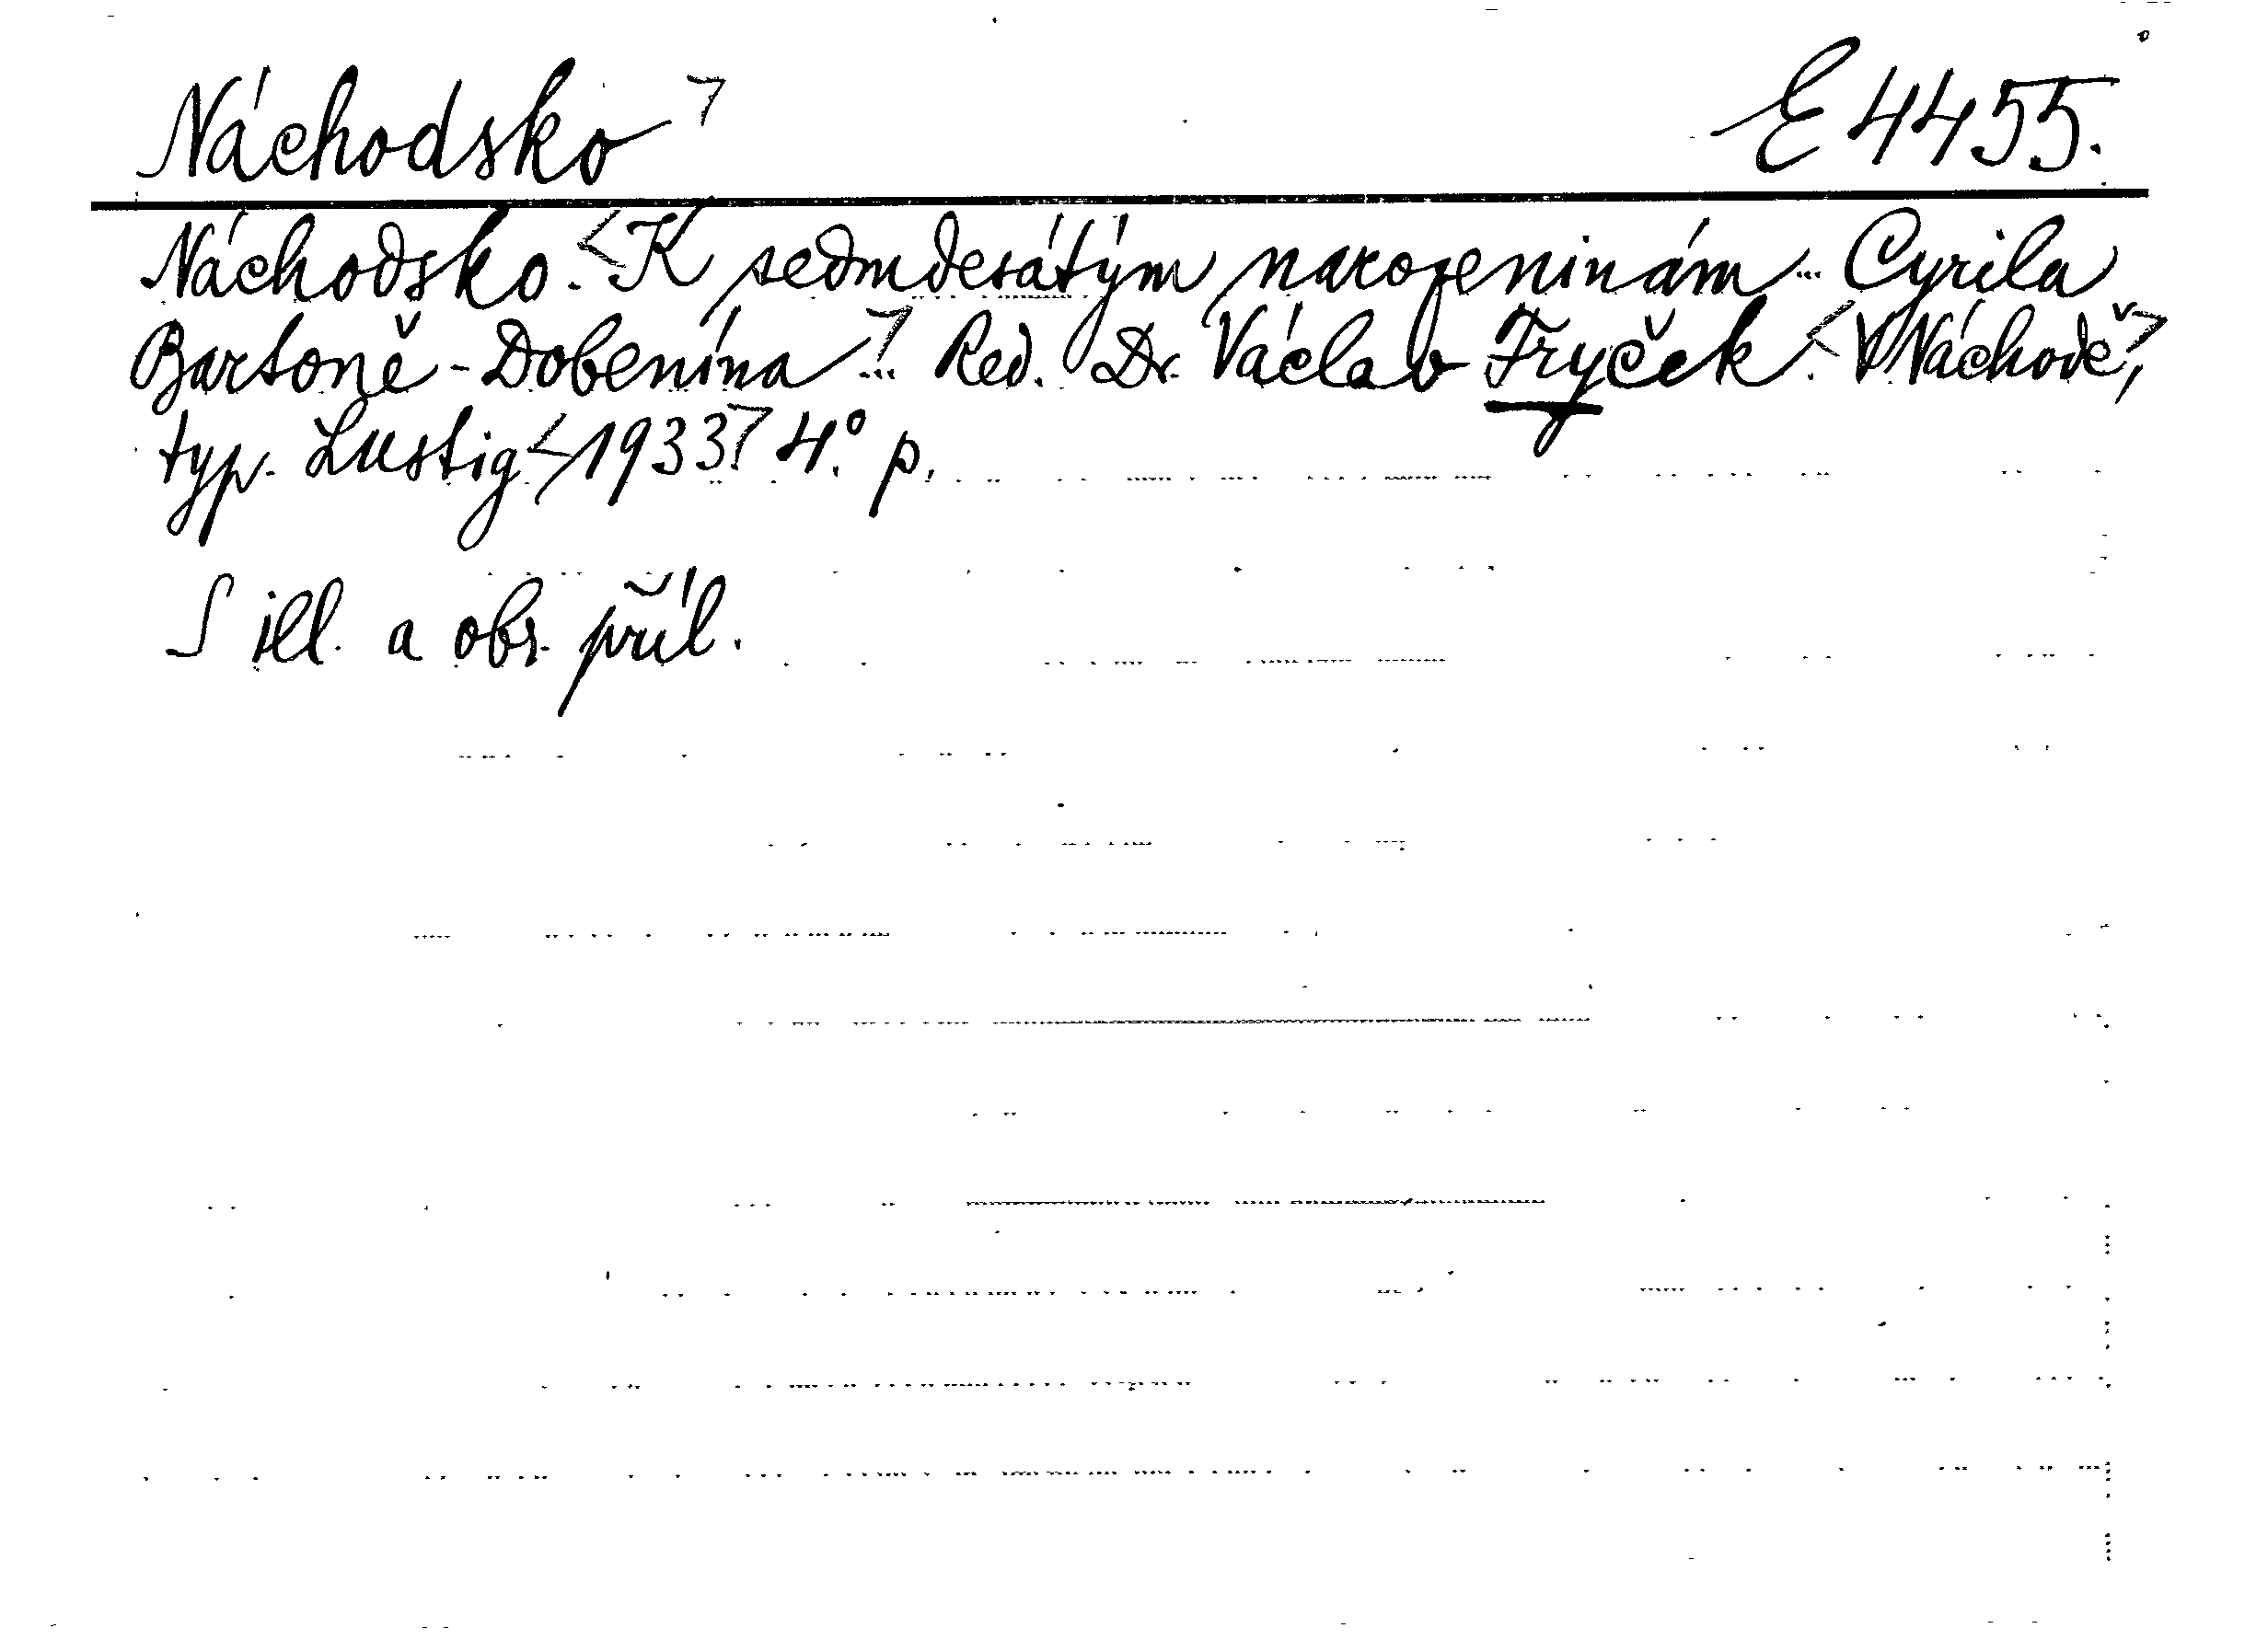 Náchodsko E 4455.
Náchodsko. <K sedmdesátým narozeninám... Cyrila
Bartoně-Dobenína...> Red. Dr. Václav Fryček. <V Náchodě>,
typ. Lustig <1933.> 4°. p.
S ill. a obr. příl.